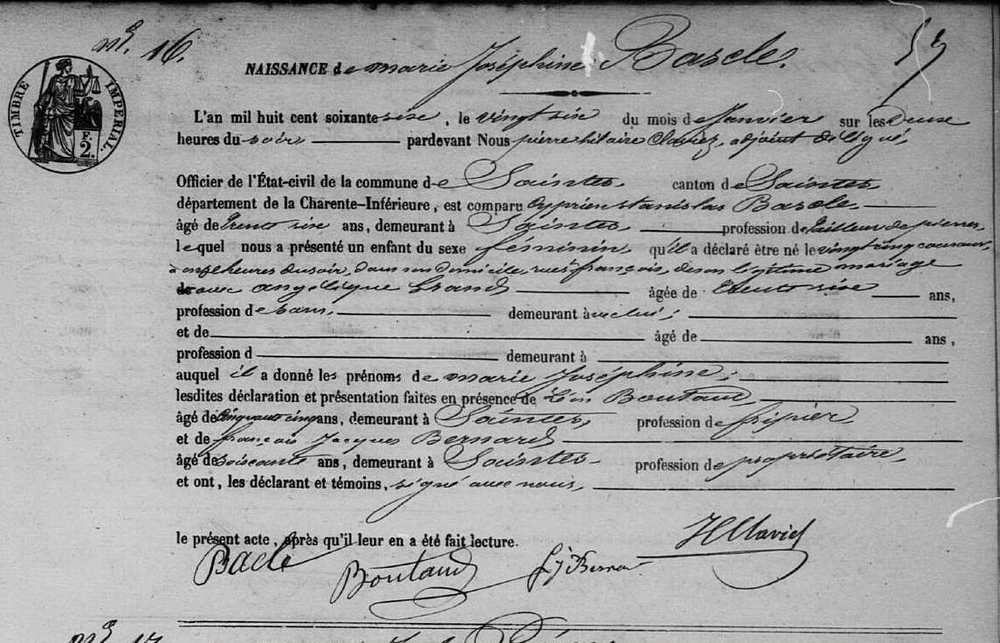 nº. 16.
57
NAISSANCE de marie Joséphine Bascle.
TIMBRE IMPERIAL.
F. 2.
L'an mil huit cent soixante six, le vingt six du mois de Janvier sur les Deux
heures du soir pardevant Nous pierre hilaire Claviez, adjoint délégué,
Officier de l'État-civil de la commune de Saintes canton de Saintes
département de la Charente-Inférieure, est comparu Cyprien Stanislas Bascle
âgé de trente six ans, demeurant à Saintes profession de tailleur de pierres,
lequel nous a présenté un enfant du sexe féminin, qu'il a déclaré être né le vingt cinq courant,
à onze heures du soir, dans son domicile, rue françois, de son légitime mariage
avec angélique Grand âgée de trente six ans,
profession de sans, demeurant avec lui;
et de âgé de ans,
profession d demeurant à
auquel il a donné les prénoms de marie Joséphine;
lesdites déclaration et présentation faites en présence de Boutaud
âgé de Cinquante cinq ans, demeurant à Saintes profession de fripier
et de françois Jacques Bernard
âgé de soixante ans, demeurant à Saintes profession de propriétaire
et ont, les déclarant et témoins, signé avec nous,
le présent acte, après qu'il leur en a été fait lecture.
HClaviez
Bacle
Boutaud
fJ Bernard
nº 17